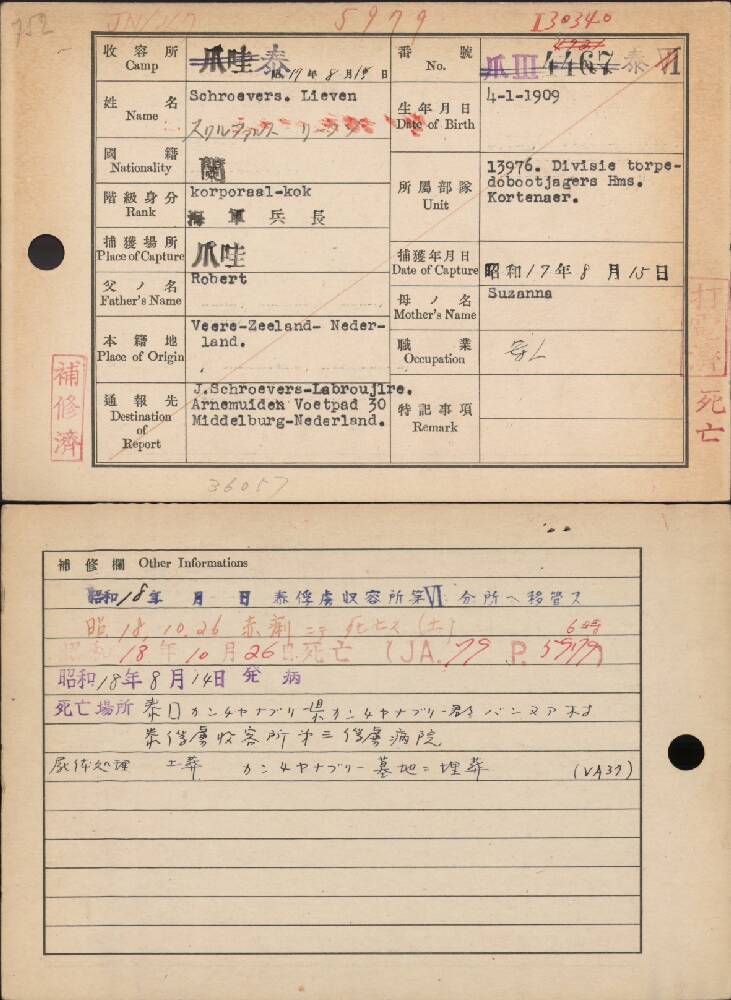 752 5979 I30340
收容所 Camp 爪哇 泰 昭17年8月15日
番號 No. 爪III 4467 泰VI
姓名 Name Schroevers. Lieven
生年月日 Date of Birth 4-1-1909
國籍 Nationality 蘭
階級身分 Rank korporaal-kok
海軍兵長
所屬部隊 Unit 13976. Divisie torpe-
dobootjagers Hms.
Kortenaer.
捕獲場所 Place of Capture 爪哇
捕獲年月日 Date of Capture 昭和17年8月15日
父ノ名 Father's Name Robert
母ノ名 Mother's Name Suzanna
本籍地 Place of Origin Veere-Zeeland- Neder-
land.
職業 Occupation
通報先 Destination of Report J.Schroevers-Labroujlre.
Arnemuiden Voetpad 30
Middelburg-Nederland.
特記事項 Remark
補修濟
打電濟
死亡
36057
補修欄 Other Informations
昭和18年 月 日 泰俘虜収容所第VI分所ヘ移管ス
昭18.10.26 赤痢ニテ死亡ス(土) 6時
昭和18年10月26日死亡 (JA.79 P.5979)
昭和18年8月14日発病
死亡場所 泰国カンチヤナブリー県カンチヤナブリー郡バンヌア村
泰俘虜收容所第三俘虜病院
屍体処理 土葬 カンチヤナブリー墓地ニ埋葬 (VA37)